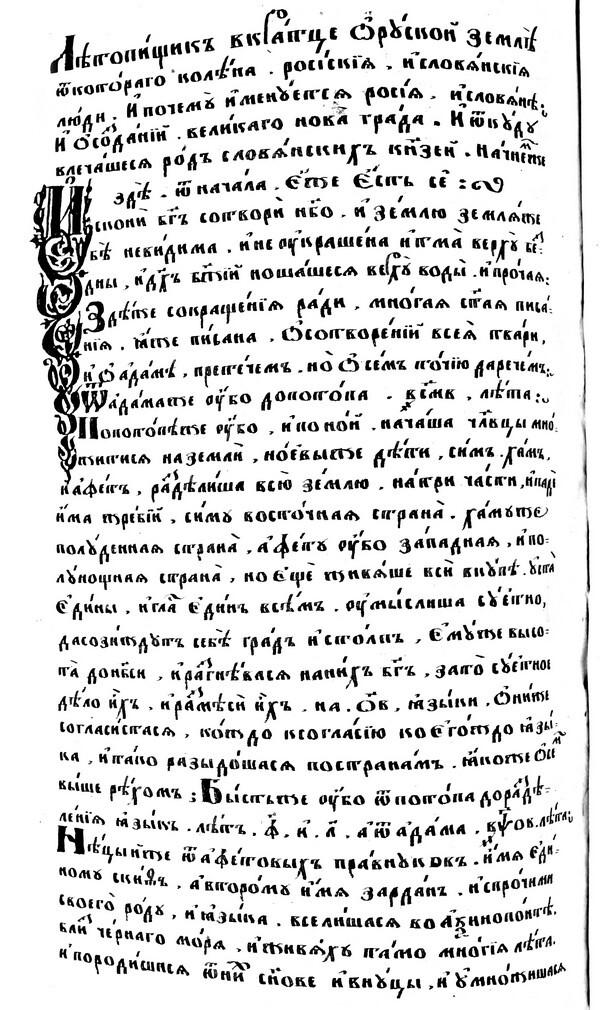 Лѣтописчикъ вкратце ѡ руской землѣ
ѿ котораго колѣна . росїскїя , и словянскїя
люди . И почему именуется росїя , и словянѣ .
И ѡ созданїи . великаго нова града . И ѿкуду
влечашеся родъ словянскихъ кнзеи . начнем же
здѣ . ѿ начала . Еже Есть се :
Искони бгъ сотвори нбо . и землю земля же
бѣ невидима , и не ѹкрашена и тма верху бе
дны , и дхъ бжїи ношашеся верху воды . и прочая :
Здѣ же сокращенїя ради , многая стая писа
нїя . ꙗже писана , ѡ сотворенїи всея твари ,
и ѡ адамѣ , претечем . но ѡ семъ точїю да речемъ :
ѿ адама же ѹбо до потопа . лѣта :
По потопѣ же ѹбо , и по нои . начаша члвцы мно
житися на земли , ноевы же дѣти , симъ . хамъ ,
и афетъ , раздѣлиша всю землю . на три части , и паде
има жребїи , симу восточная страна . хаму же
полуденная страна , афету ѹбо западная , и по
лунощная страна , но еще живяше вси вкупѣ . уста
Едины , и глас Единъ всѣмъ . ѹмыслиша суетно ,
да созиждутъ себѣ градъ и столпъ , Ему же высо
та до нбси , и разгнѣвася на нихъ бгъ , за то суетное
дѣло ихъ , и размѣси ихъ . на . ѻв , ꙗзыки . ѻни же
согласистася , кождо к согласїю коегождо ꙗзы
ка , и тако разыдошася по странам . ꙗко же ѡ сем
выше рѣхом ; Бысть же ѹбо ѿ потопа до раздѣ
ленїя ꙗзыкъ . лѣтъ . ф . и . л . а ѿ адама , лѣта
Нѣцыи же ѿ афетовыхъ правнуковъ . имя еди
ному скифъ , а второму имя зардан . и с прочими
своего роду , и ꙗзыка . вселишася во
близ чернаго моря , и живяхъ тамо многїя лѣта .
и породишися ѿ них снове и внуцы , и умножишася